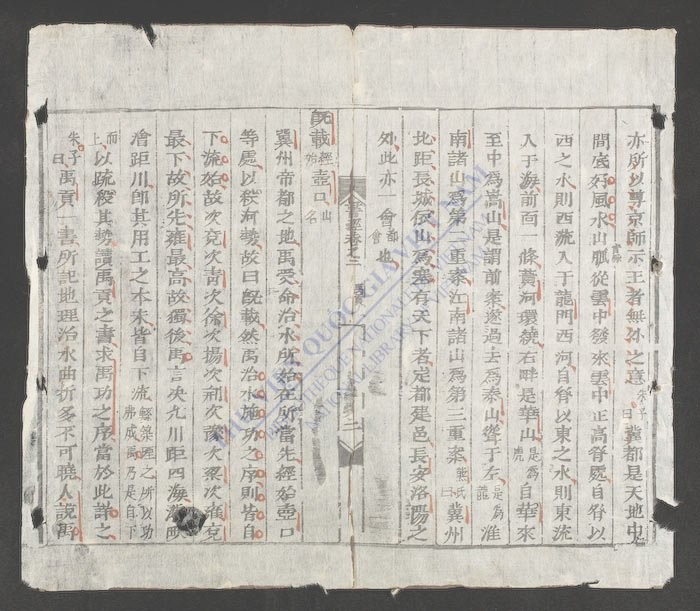 亦所以尊京師示王者無外之意朱子曰冀都是天地中
間底好風水山脈從雲中發來雲中正高脊處自脊以
西之水則西流入于龍門西河自脊以東之水則東流
入于海前面一條黃河環繞右畔是華山是為虎自華來
至中為嵩山是謂前案遂過去為泰山聳于左是為龍淮
南諸山爲第二重案江南諸山爲第三重案葉氏曰冀州
北距長城山爲塞有天下者定都建邑長安洛陽之
外此亦一都會也
書經卷之三 禹貢
既載經始壺口山名
冀州帝都之地禹受命治水所始在所當先經始壺口
等處以殺河勢故曰既載然禹治水施功之序則皆自
下流始故次兗次青次徐次揚次荊次豫次梁次雍兗
最下故所先雍最高故獨後禹言决九川距四海濬畎
澮距川卽其用工之本末皆自下流鯀築堙之所以功弗成禹乃是自下
而上以疏殺其勢讀禹貢之書求禹功之序當於此詳之
朱子曰禹貢一書所記地理治水曲折多不可曉人說禹